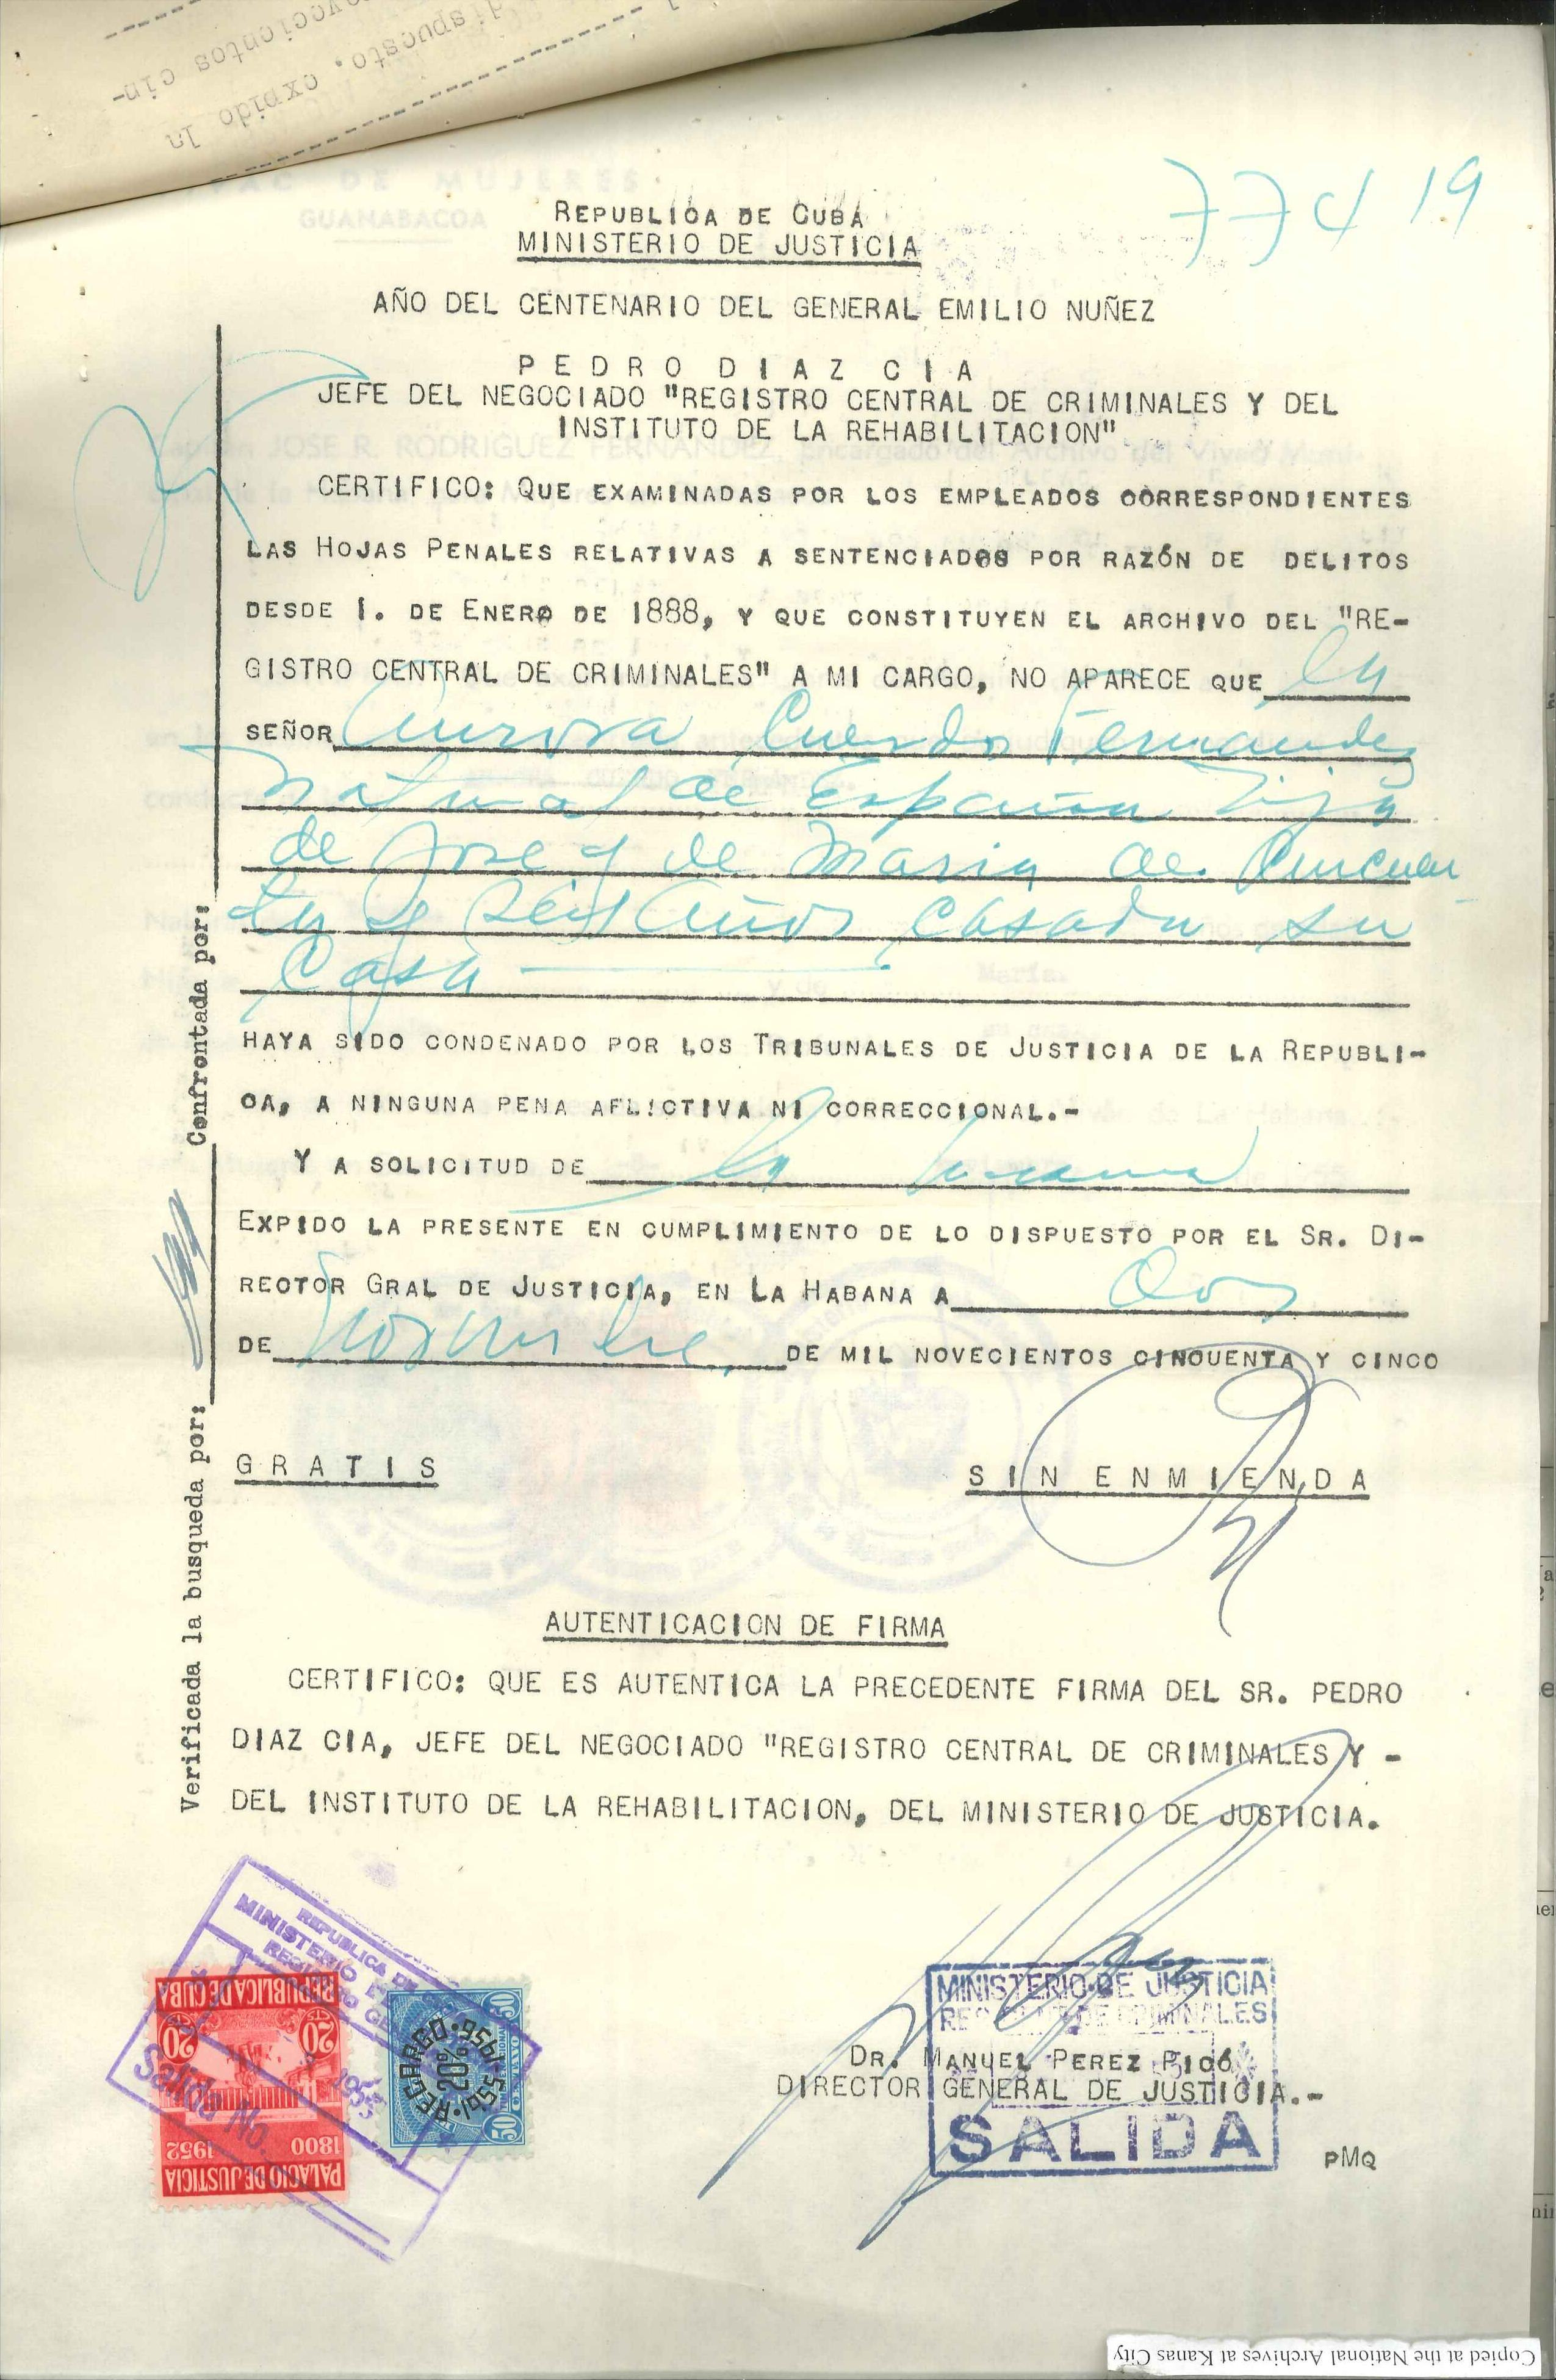 vecientos cin-
dispuesto, expido la
77419
REPUBLICA DE CUBA
MINISTERIO DE JUSTICIA
AÑO DEL CENTENARIO DEL GENERAL EMILIO NUÑEZ
P E D R O D I A Z C I A
JEFE DEL NEGOCIADO "REGISTRO CENTRAL DE CRIMINALES Y DEL
INSTITUTO DE LA REHABILITACION"
CERTIFICO: QUE EXAMINADAS POR LOS EMPLEADOS CORRESPONDIENTES
LAS HOJAS PENALES RELATIVAS A SENTENCIADOS POR RAZÓN DE DELITOS
DESDE 1. DE ENERO DE 1888, Y QUE CONSTITUYEN EL ARCHIVO DEL "RE-
GISTRO CENTRAL DE CRIMINALES" A MI CARGO, NO APARECE QUE la
SEÑOR Aurora Cuendo Fernández
Natural de España hija
de Jose y de Maria de Cincuen
ta y Seis años Casada su
Casa
HAYA SIDO CONDENADO POR LOS TRIBUNALES DE JUSTICIA DE LA REPUBLI-
CA, A NINGUNA PENA AFLICTIVA NI CORRECCIONAL.-
Y A SOLICITUD DE la misma
EXPIDO LA PRESENTE EN CUMPLIMIENTO DE LO DISPUESTO POR EL SR. DI-
RECTOR GRAL DE JUSTICIA, EN LA HABANA A Dos
DE Noviembre DE MIL NOVECIENTOS CINCUENTA Y CINCO
G R A T I S
S I N E N M I E N D A
AUTENTICACION DE FIRMA
CERTIFICO: QUE ES AUTENTICA LA PRECEDENTE FIRMA DEL SR. PEDRO
DIAZ CIA, JEFE DEL NEGOCIADO "REGISTRO CENTRAL DE CRIMINALES Y -
DEL INSTITUTO DE LA REHABILITACION, DEL MINISTERIO DE JUSTICIA.
Confrontada por:
Verificada la busqueda por:
REPUBLICA DE
MINISTERIO
Salida No.
REPUBLICA DE CUBA
20 20
1800 1952
PALACIO DE JUSTICIA
RECARGO 20% 1955-1956
50 50
MINISTERIO DE JUSTICIA
DE CRIMINALES
DR. MANUEL PEREZ PICÓ
DIRECTOR GENERAL DE JUSTICIA.-
SALIDA
PMQ
Copied at the National Archives at Kanas City